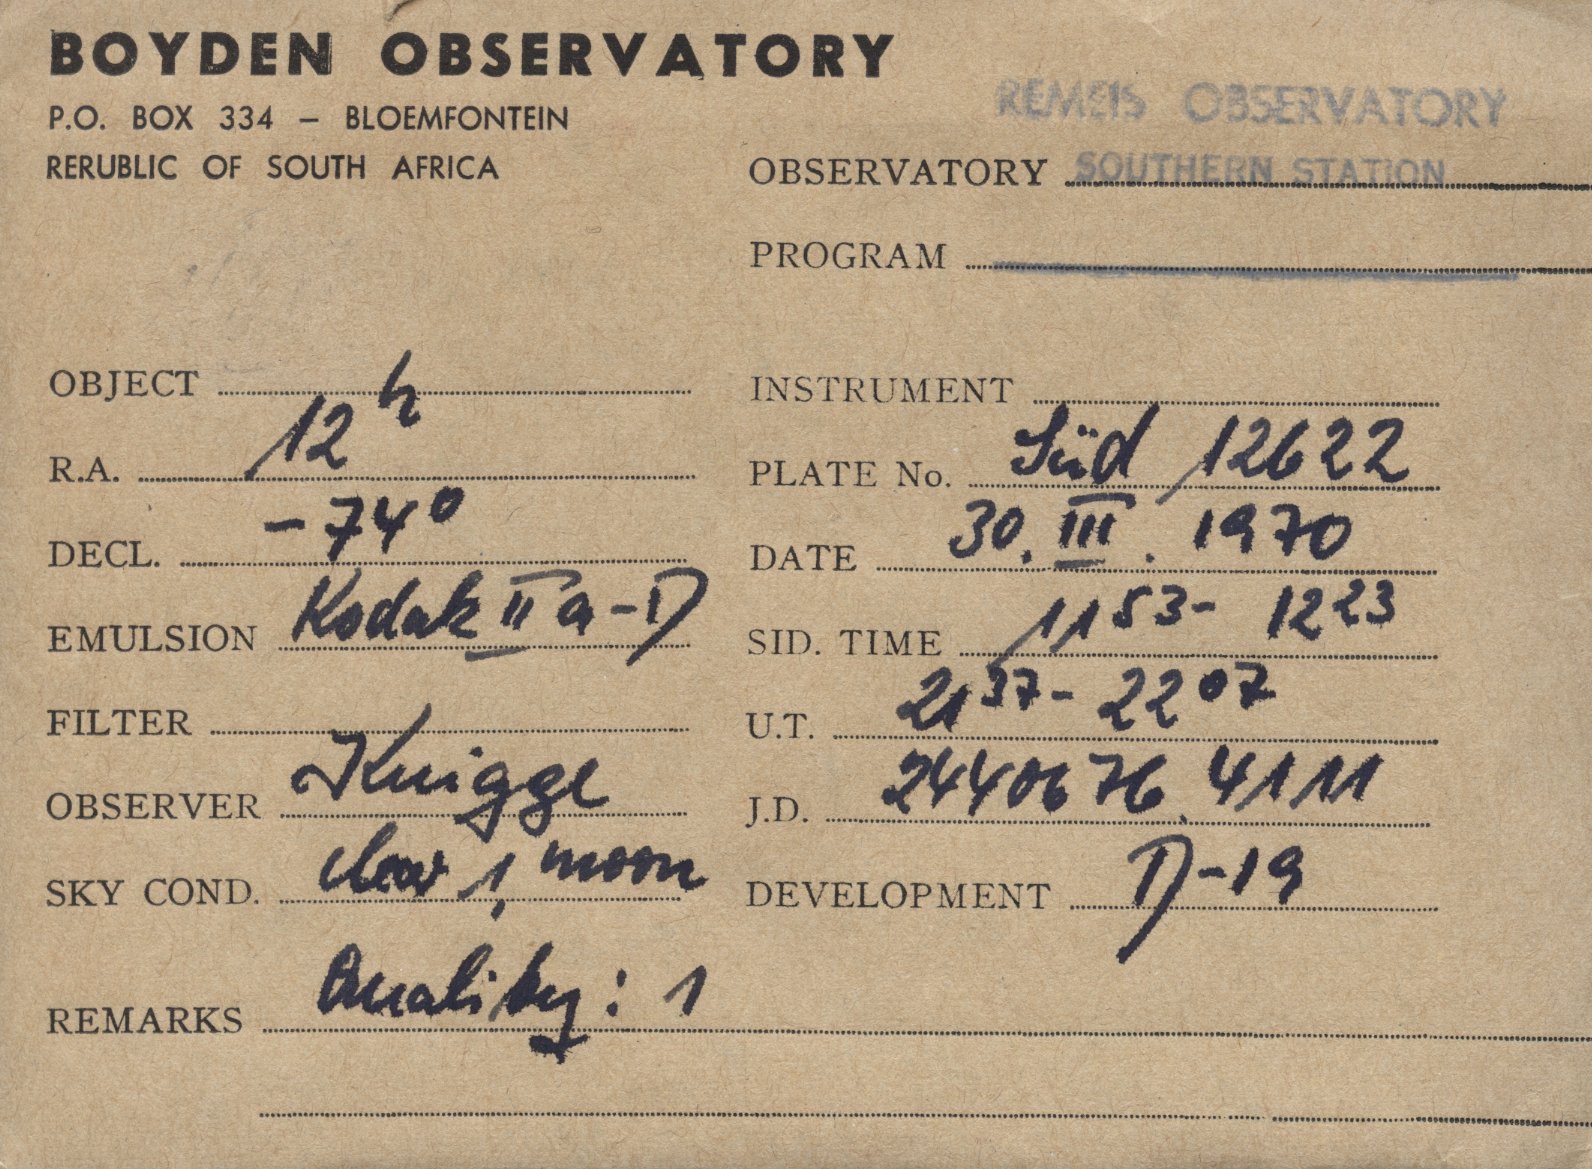 BOYDEN OBSERVATORY
P.O. BOX 334 – BLOEMFONTEIN
RERUBLIC OF SOUTH AFRICA
REMEIS OBSERVATORY
OBSERVATORY SOUTHERN STATION
PROGRAM
OBJECT
R.A. 12h
DECL. -74°
EMULSION Kodak IIa-D
FILTER
OBSERVER Knigge
SKY COND. clear 1, moon
REMARKS Quality: 1
INSTRUMENT
PLATE No. Süd 12622
DATE 30. III. 1970
SID. TIME 11 53 - 12 23
U.T. 21 37 - 22 07
J.D. 2440676.4111
DEVELOPMENT D-19